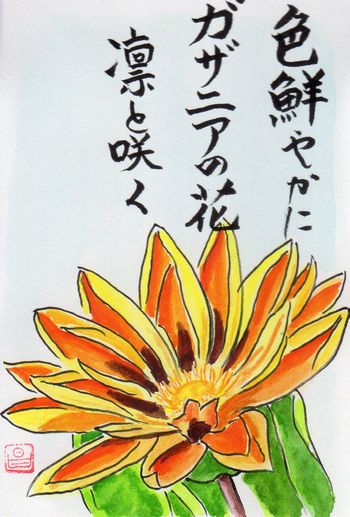 色鮮やかに
ガザニアの花
凛と咲く